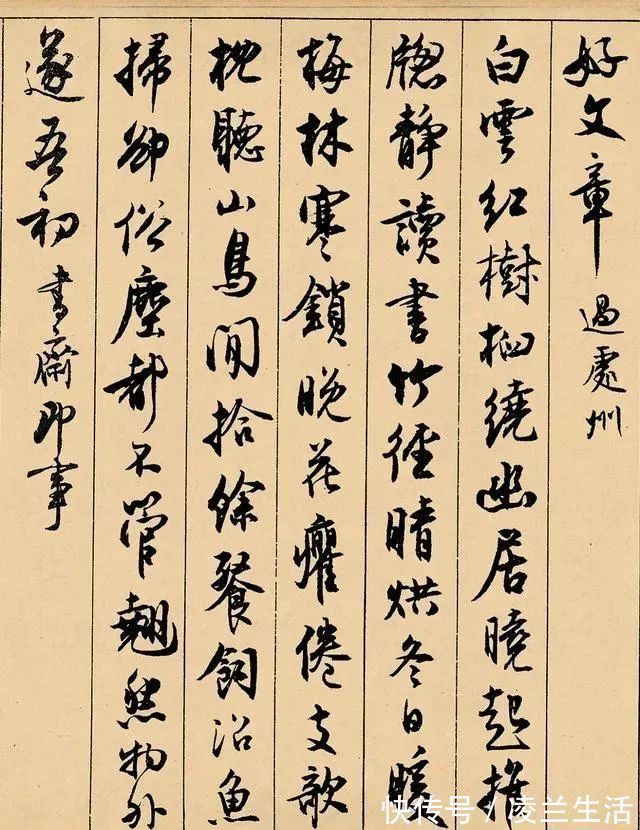 好文章 過處州
白雲紅樹相繞幽居曉起推
窗静讀書竹徑晴烘冬日暖
梅林寒鎖晚花癯倦支欹
枕聽山鳥閒拾餘餐飼沼魚
掃卻俗塵都不管翹然物外
遂吾初 書齋即事
快传号/凌兰生活